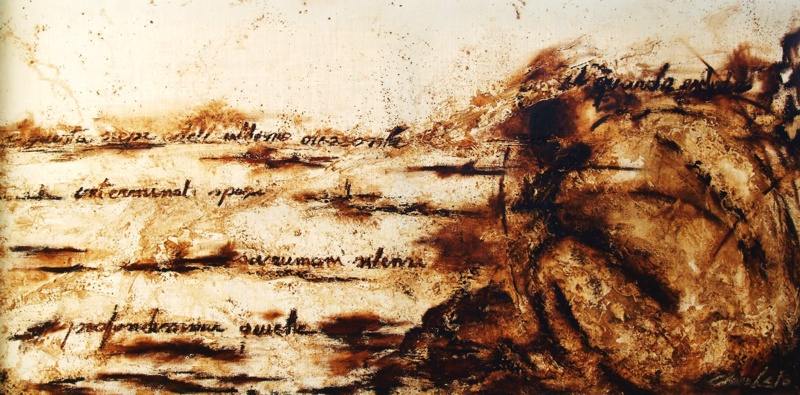 il guardo esclude
dell ultimo orizzonte
interminati spazi
sovrumani silenzi
profondissima quiete